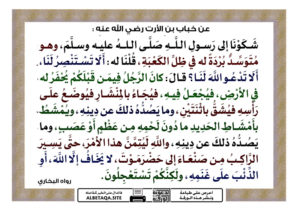 عن خباب بن الأرت رضي الله عنه :
شَكَوْنَا إِلَى رَسُولِ اللَّهِ صَلَّى اللهُ عليه وسلَّمَ، وهو
مُتَوَسِّدٌ بُرْدَةً له في ظِلِّ الكَعْبَةِ، قُلْنَا له: أَلَا تَسْتَنْصِرُ لَنَا،
أَلَا تَدْعُو اللَّهَ لَنَا؟ قالَ: كانَ الرَّجُلُ فِيمَن قَبْلَكُمْ يُحْفَرُ له
في الأرْضِ، فيُجْعَلُ فِيهِ، فيُجَاءُ بالمِنْشَارِ فيُوضَعُ علَى
رَأْسِهِ فيُشَقُّ باثْنَتَيْنِ، وما يَصُدُّهُ ذلكَ عن دِينِهِ، ويُمْشَطُ
بأَمْشَاطِ الحَدِيدِ ما دُونَ لَحْمِهِ مِن عَظْمٍ أوْ عَصَبٍ، وما
يَصُدُّهُ ذلكَ عن دِينِهِ، واللَّهِ لَيُتِمَّنَّ هذا الأمْرَ، حتَّى يَسِيرَ
الرَّاكِبُ مِن صَنْعَاءَ إلى حَضْرَمَوْتَ، لا يَخَافُ إلَّا اللَّهَ، أوِ
الذِّئْبَ علَى غَنَمِهِ، ولَكِنَّكُمْ تَسْتَعْجِلُونَ.
رواه البخاري
احرص على طباعة
ونشر هذه الورقة
ALBETAQA.SITE